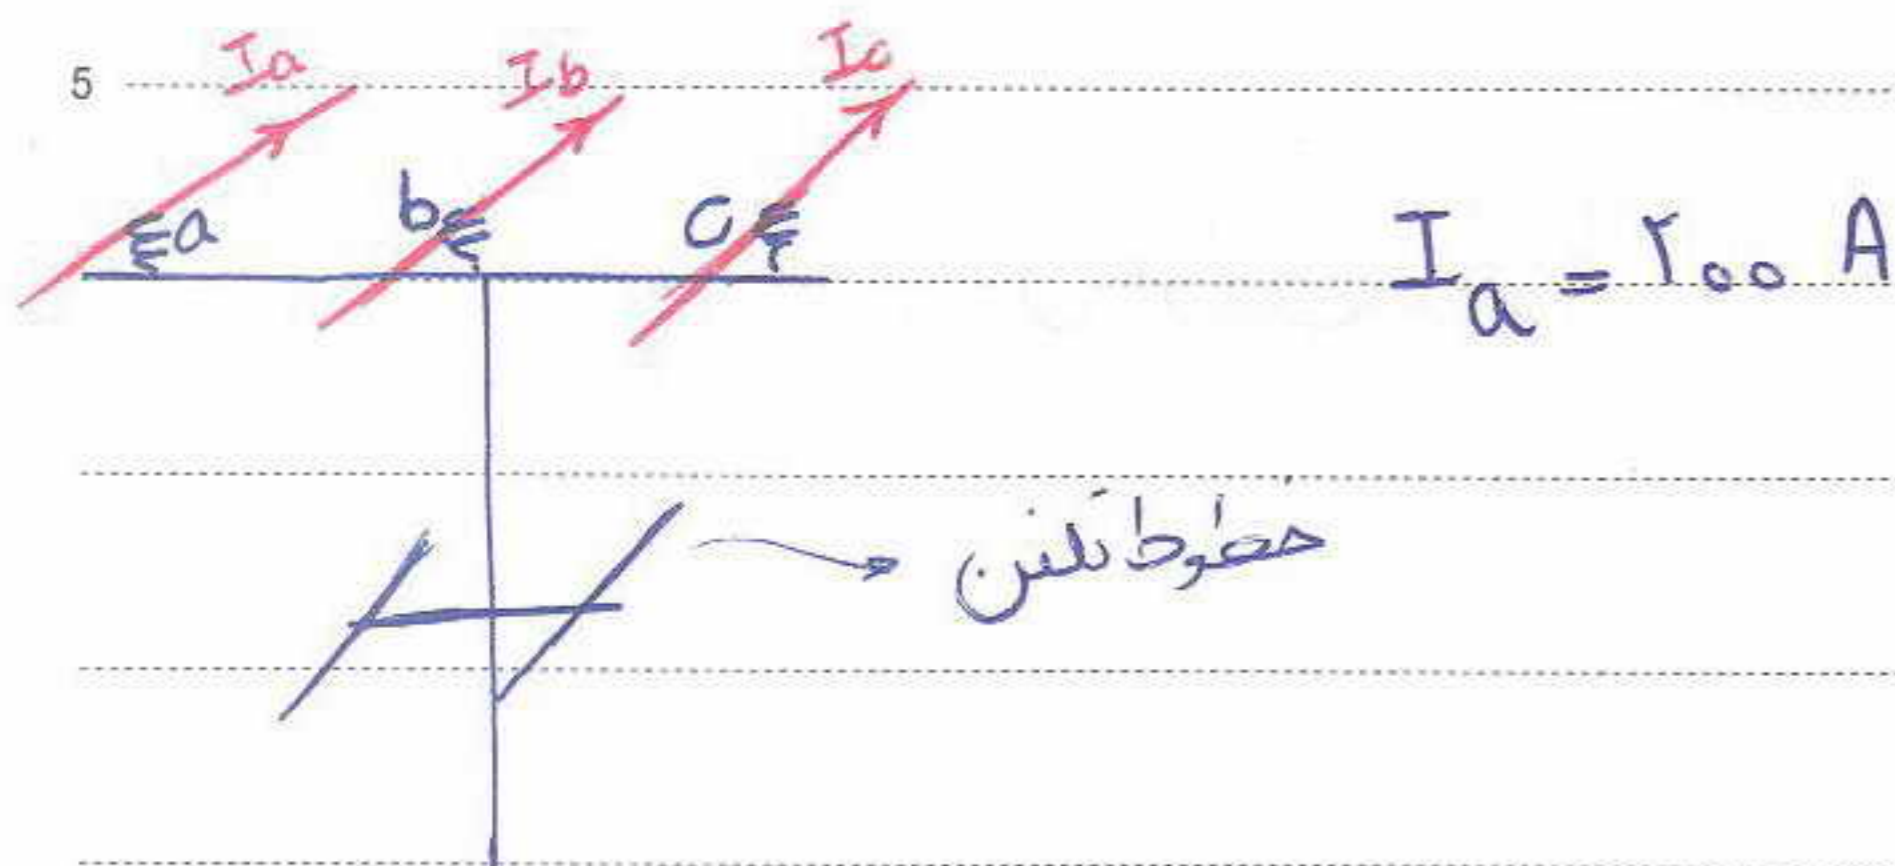 5
Ia Ib Ic
a b c
I_a = ۲۰۰ A
خطوط تلفن